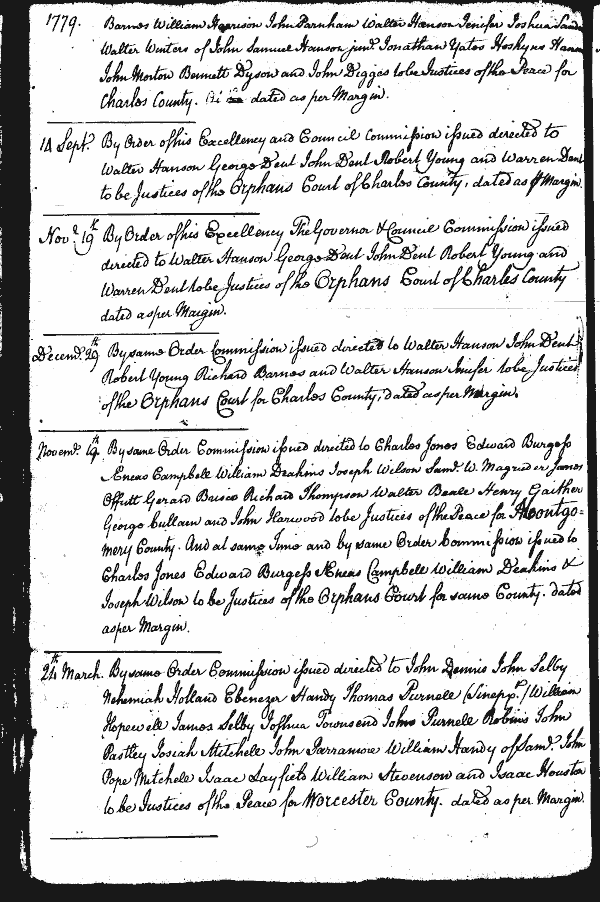 1779. Barnes William Harrison John Parnham Walter Hanson Jenifer Joshua
Walter Winters of John Samuel Hanson junr. Jonathan Yates Hoskyns
John Morton Bennett Dyson and John Digges to be Justices of the Peace for
Charles County. dated as per Margin.
14 Septr. By Order of his Excellency and Council Commission issued directed to
Walter Hanson George Dent John Dent Robert Young and Warren Dent
to be Justices of the Orphans Court of Charles County, dated as P Margin.
Novr. 19th By Order of his Excellency The Governor & Council Commission issued
directed to Walter Hanson George Dent John Dent Robert Young and
Warren Dent to be Justices of the Orphans Court of Charles County
dated as per Margin.
Decemr. 29th By same Order Commission issued directed to Walter Hanson John Dent
Robert Young Richard Barnes and Walter Hanson Jenifer to be Justices
of the Orphans Court for Charles County, dated as per Margin.
Novemr. 19th By same Order Commission issued directed to Charles Jones Edward Burgess
Æneas Campbell William Deakins Joseph Wilson Saml. W. Magruder James
Offutt Gerard Brisco Richard Thompson Walter Beale Henry Gaither
George Cullam and John Harwood to be Justices of the Peace for Montgo=
mery County. And at same Time and by same Order Commission issued to
Charles Jones Edward Burgess Æneas Campbell William Deakins &
Joseph Wilson to be Justices of the Orphans Court for same County. dated
as per Margin.
24th March. By same Order Commission issued directed to John Dennis John Selby
Nehemiah Holland Ebenezer Handy Thomas Purnell (Sinepxt.) William
Hopewell James Selby Joshua Townsend John Purnell Robins John
Pastley Josiah Mitchell John Parramore William Handy of Saml. John
Pope Mitchell Isaac Layfield William Stevenson and Isaac Houston
to be Justices of the Peace for Worcester County. dated as per Margin.